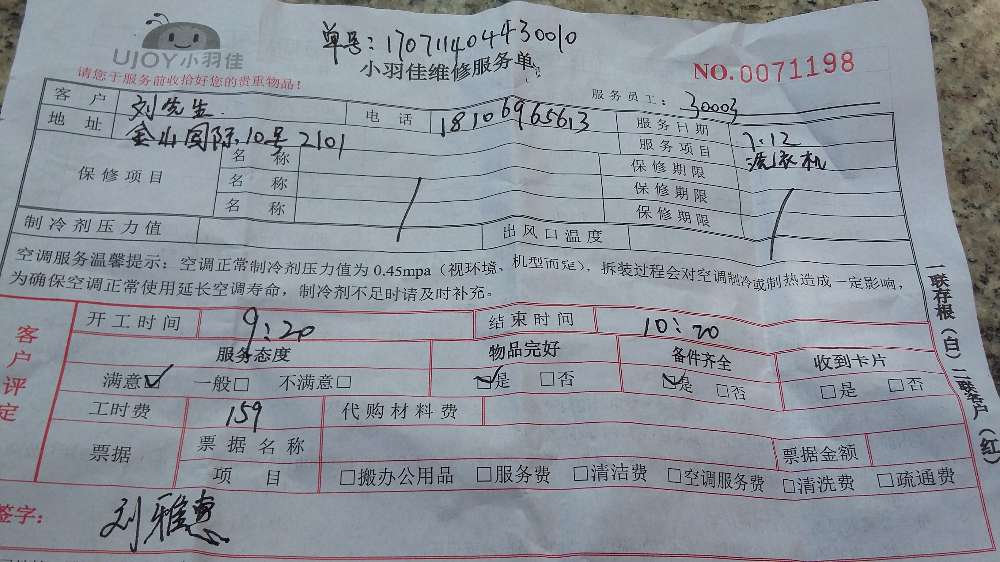 单号:170711404430010
UJOY小羽佳
小羽佳维修服务单
NO.0071198
请您于服务前收拾好您的贵重物品!
服务员工: 30003
客户 刘先生 电话 18106965613 服务日期 7.12
地址 金山国际.10号2101 服务项目 洗衣机
保修项目 名称 保修期限
名称 保修期限
名称 保修期限
制冷剂压力值 出风口温度
空调服务温馨提示:空调正常制冷剂压力值为0.45mpa(视环境、机型而定),拆装过程会对空调制冷或制热造成一定影响,
为确保空调正常使用延长空调寿命,制冷剂不足时请及时补充。
客户评定
开工时间 9:20 结束时间 10:20
服务态度 物品完好 备件齐全 收到卡片
满意☑ 一般□ 不满意□ ☑是 □否 ☑是 □否 □是 □否
工时费 159 代购材料费
票据 票据名称 票据金额
项目 □搬办公用品 □服务费 □清洁费 □空调服务费 □清洗费 □疏通费
签字: 刘雅惠
一联存根(白) 二联客户(红)